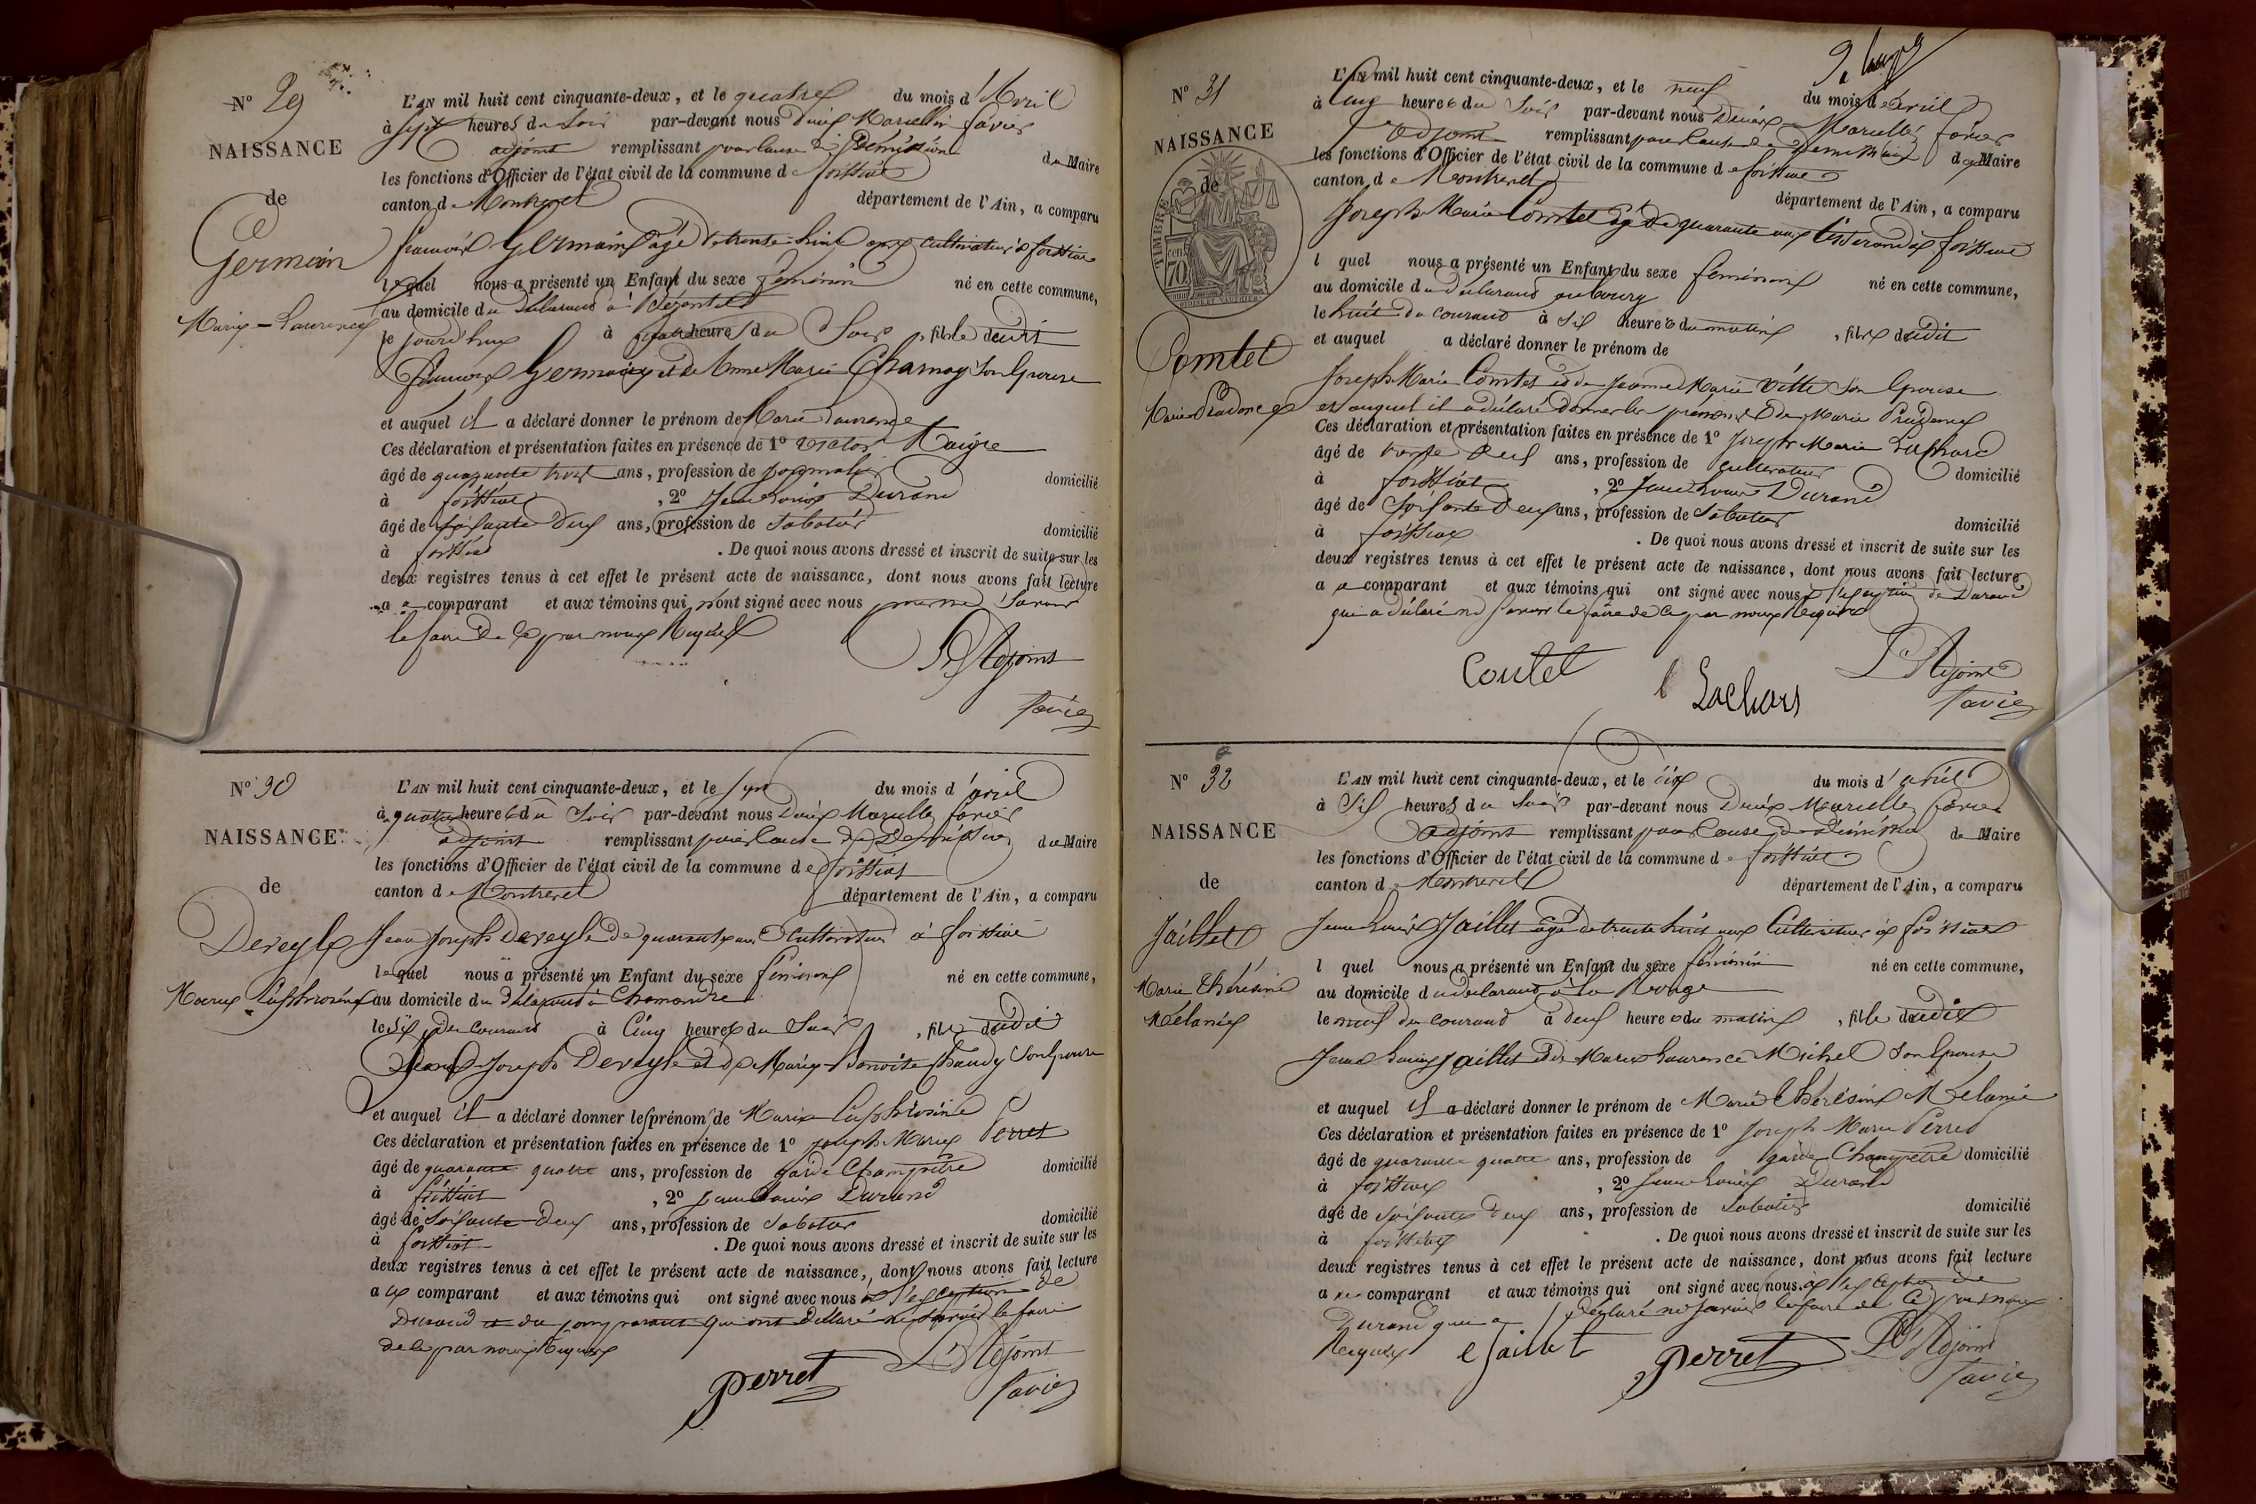 N° 29
NAISSANCE
de
Germain
Marie-Laurence
L'AN mil huit cent cinquante-deux, et le quatre du mois d'Avril
à sept heures du Soir par-devant nous Marcellin favier
adjoint remplissant pour cause de Démission du Maire
les fonctions d'Officier de l'état civil de la commune de foissiat
canton de Montrevel département de l'Ain, a comparu
françois Germain âgé de trente huit ans cultivateur à foissiat
lequel nous a présenté un Enfant du sexe féminin né en cette commune,
au domicile du déclarant à
le jourd'hui à heures du Soir, fille dudit
françois Germain et de Anne Marie Charnay Son Epouse
et auquel il a déclaré donner le prénom de Marie Laurence
Ces déclaration et présentation faites en présence de 1° Victor Maigre
âgé de quarante trois ans, profession de journalier domicilié
à foissiat, 2° Jean Louis Durand
âgé de soixante Deux ans, profession de Sabotier domicilié
à foissiat. De quoi nous avons dressé et inscrit de suite sur les
deux registres tenus à cet effet le présent acte de naissance, dont nous avons fait lecture
au comparant et aux témoins qui n'ont signé avec nous pour ne Savoir
le faire de ce par nous Requis
L'Adjoint
favier
N° 30
NAISSANCE
de
Deveyle
Marie Euphrosine
L'AN mil huit cent cinquante-deux, et le Sept du mois d'avril
à quatre heures du Soir par-devant nous Marcellin favier
adjoint remplissant pour cause de Démission du Maire
les fonctions d'Officier de l'état civil de la commune de foissiat
canton de Montrevel département de l'Ain, a comparu
Jean Joseph Deveyle de quarante ans Cultivateur à foissiat
lequel nous a présenté un Enfant du sexe féminin né en cette commune,
au domicile du déclarant à Chamandre
le Six du Courant à Cinq heures du Soir, fille dudit
Jean Joseph Deveyle et de Marie Benoite Chaudy Son Epouse
et auquel il a déclaré donner les prénom de Marie Euphrosine
Ces déclaration et présentation faites en présence de 1° Joseph Marie Perret
âgé de quarante quatre ans, profession de garde Champêtre domicilié
à foissiat, 2° Jean Louis Durand
âgé de Soixante Deux ans, profession de Sabotier domicilié
à foissiat. De quoi nous avons dressé et inscrit de suite sur les
deux registres tenus à cet effet le présent acte de naissance, dont nous avons fait lecture
au comparant et aux témoins qui ont signé avec nous à l'exception de
Durand et du comparant qui ont Déclaré ne Savoir le faire
de ce par nous Requis
Perret
L'Adjoint
favier
N° 31
NAISSANCE
de
TIMBRE
70 cen
Comtet
Marie Prudence
L'AN mil huit cent cinquante-deux, et le neuf du mois d'avril
à Cinq heures du Soir par-devant nous Marcellin favier
adjoint remplissant pour cause de Demission du Maire
les fonctions d'Officier de l'état civil de la commune de foissiat
canton de Montrevel département de l'Ain, a comparu
Joseph Marie Comtet âgé de quarante ans tisserand à foissiat
lequel nous a présenté un Enfant du sexe féminin né en cette commune,
au domicile du déclarant au bourg
le huit du courant à Six heures du matin, fille dudit
et auquel a déclaré donner le prénom de
Joseph Marie Comtet et de Jeanne Marie Vitte Son Epouse
et auquel il a déclaré donner les prénoms de Marie Prudence
Ces déclaration et présentation faites en présence de 1° Joseph Marie
âgé de trente Deux ans, profession de cultivateur domicilié
à foissiat, 2° Jean Louis Durand
âgé de Soixante Deux ans, profession de Sabotier domicilié
à foissiat. De quoi nous avons dressé et inscrit de suite sur les
deux registres tenus à cet effet le présent acte de naissance, dont nous avons fait lecture
au comparant et aux témoins qui ont signé avec nous à l'exception de Durand
qui a déclaré ne Savoir le faire de ce par nous Requis
Contet
Lachars
L'Adjoint
favier
N° 32
NAISSANCE
de
Jaillet
Marie Thérésine
Mélanie
L'AN mil huit cent cinquante-deux, et le dix du mois d'avril
à Six heures du Soir par-devant nous Marcellin favier
adjoint remplissant pour Cause de Démission du Maire
les fonctions d'Officier de l'état civil de la commune de foissiat
canton de Montrevel département de l'Ain, a comparu
Jean Louis Jaillet âgé de trente huit ans Cultivateur à foissiat
lequel nous a présenté un Enfant du sexe féminin né en cette commune,
au domicile du déclarant à la
le neuf du courant à deux heures du matin, fille dudit
Jean Louis Jaillet et de Marie Laurence Michel Son Epouse
et auquel il a déclaré donner le prénom de Marie Thérésine Mélanie
Ces déclaration et présentation faites en présence de 1° Joseph Marie Perret
âgé de quarante quatre ans, profession de garde Champêtre domicilié
à foissiat, 2° Jean Louis Durand
âgé de soixante deux ans, profession de Sabotier domicilié
à foissiat. De quoi nous avons dressé et inscrit de suite sur les
deux registres tenus à cet effet le présent acte de naissance, dont nous avons fait lecture
au comparant et aux témoins qui ont signé avec nous à l'exception de
Durand qui a déclaré ne savoir le faire de ce par nous
Requis
Jaillet
Perret
L'Adjoint
favier